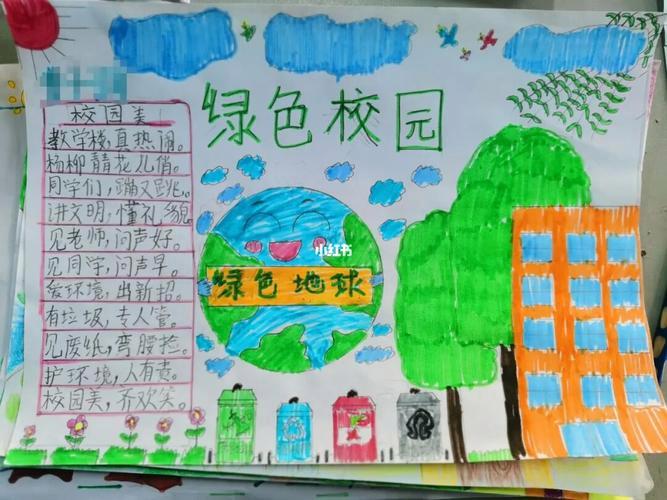 绿色校园
校园美
教学楼,真热闹。
杨柳青花儿俏。
同学们,蹦又跳。
讲文明,懂礼貌。
见老师,问声好。
见同学,问声早。
爱环境,出新招。
有垃圾,专人管。
见废纸,弯腰捡。
护环境,人有责。
校园美,齐欢笑。
小红书
绿色地球